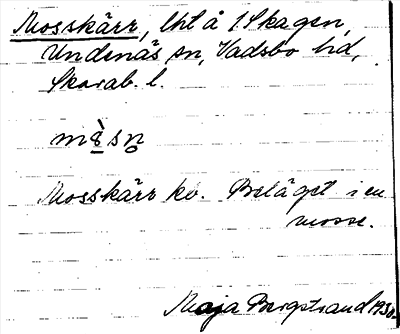 Mosskärr, lht å 1 Skagen,
Undenäs sn, Vadsbo hd,
Skarab. l.
Mosskärr ko. Beläget i en
mosse.
Maja Bergstrand